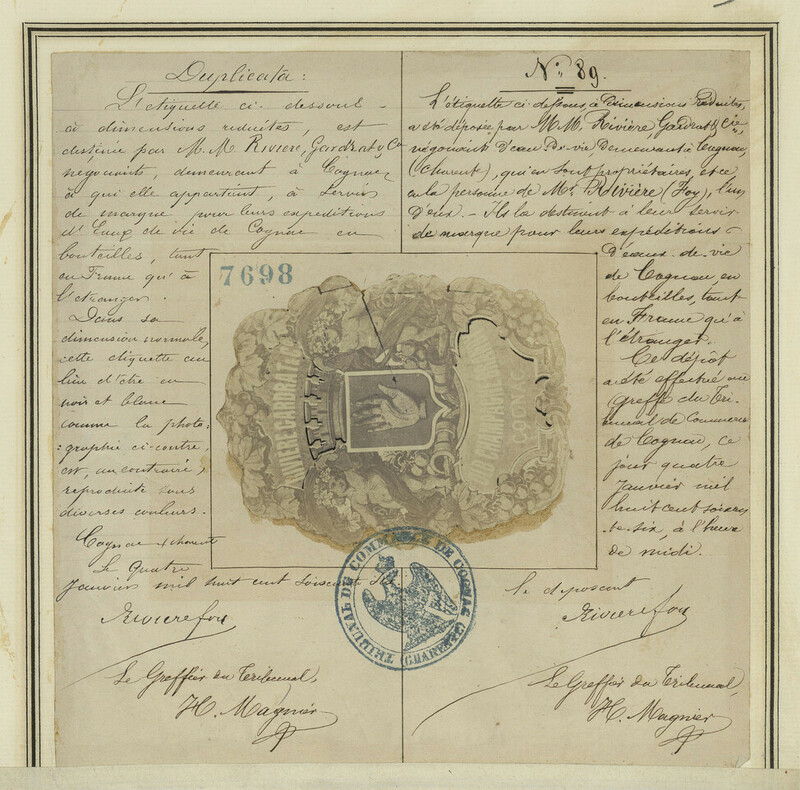 Duplicata :
L'étiquette ci-dessous -
à dimensions réduites, est
destinée par M.M. Rivière, Gardrat & Co
négociants, demeurant à Cognac,
à qui elle appartient, à servir
de marque pour leurs expéditions
d'Eaux de vie de Cognac en
bouteilles, tant
en France qu'à
l'étranger.
Dans sa
dimension normale,
cette étiquette au
lieu d'être en
noir et blanc
comme la photo-
:graphie ci-contre,
est, au contraire,
reproduite sous
diverses couleurs.
Cognac charente
Le Quatre
Janvier mil huit cent soixante six
Rivière foy
Le Greffier du Tribunal,
H. Magnier
N° 89.
L'étiquette ci-dessous, à Dimensions Réduites,
a été déposée par M.M. Rivière Gardrat & Cie,
négociants D'eau De-vie Demeurant à Cognac,
(Charent), qui en sont propriétaires, et ce
en la personne de Mr. Rivière (Foy), l'un
D'eux. - Ils la destinent à leur servir
de marque pour leurs expéditions -
D'eaux-de-vie
de Cognac, en
bouteilles, tant
en France qu'à
l'étranger.
Ce dépôt
a été effectué au
Greffe du Tri-
bunal de Commerce
de Cognac, ce
jour quatre
Janvier mil
huit cent soixan-
te-six, à l'heure
de midi.
Le deposant
Rivière foy
Le Greffier du Tribunal,
H. Magnier
7698
RIVIERE GARDRAT
TRIBUNAL DE COMMERCE DE COGNAC (CHARENTE)